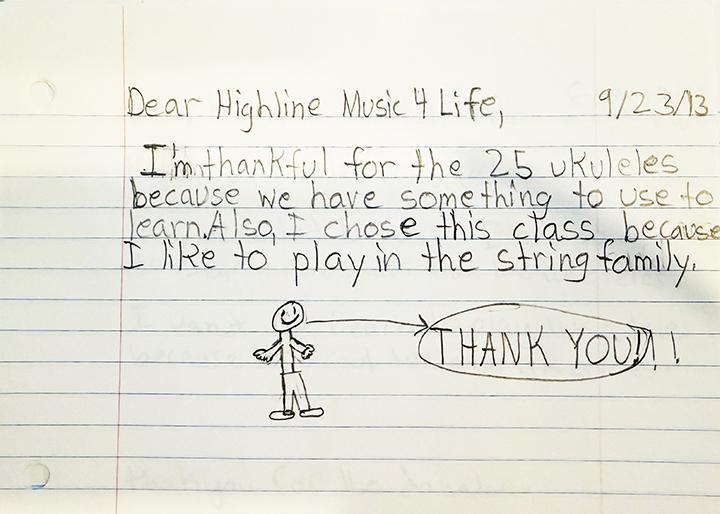 Dear Highline Music 4 Life, 9/23/13
I'm thankful for the 25 ukuleles
because we have something to use to
learn. Also, I chose this class because
I like to play in the string family.
THANK YOU!!!!